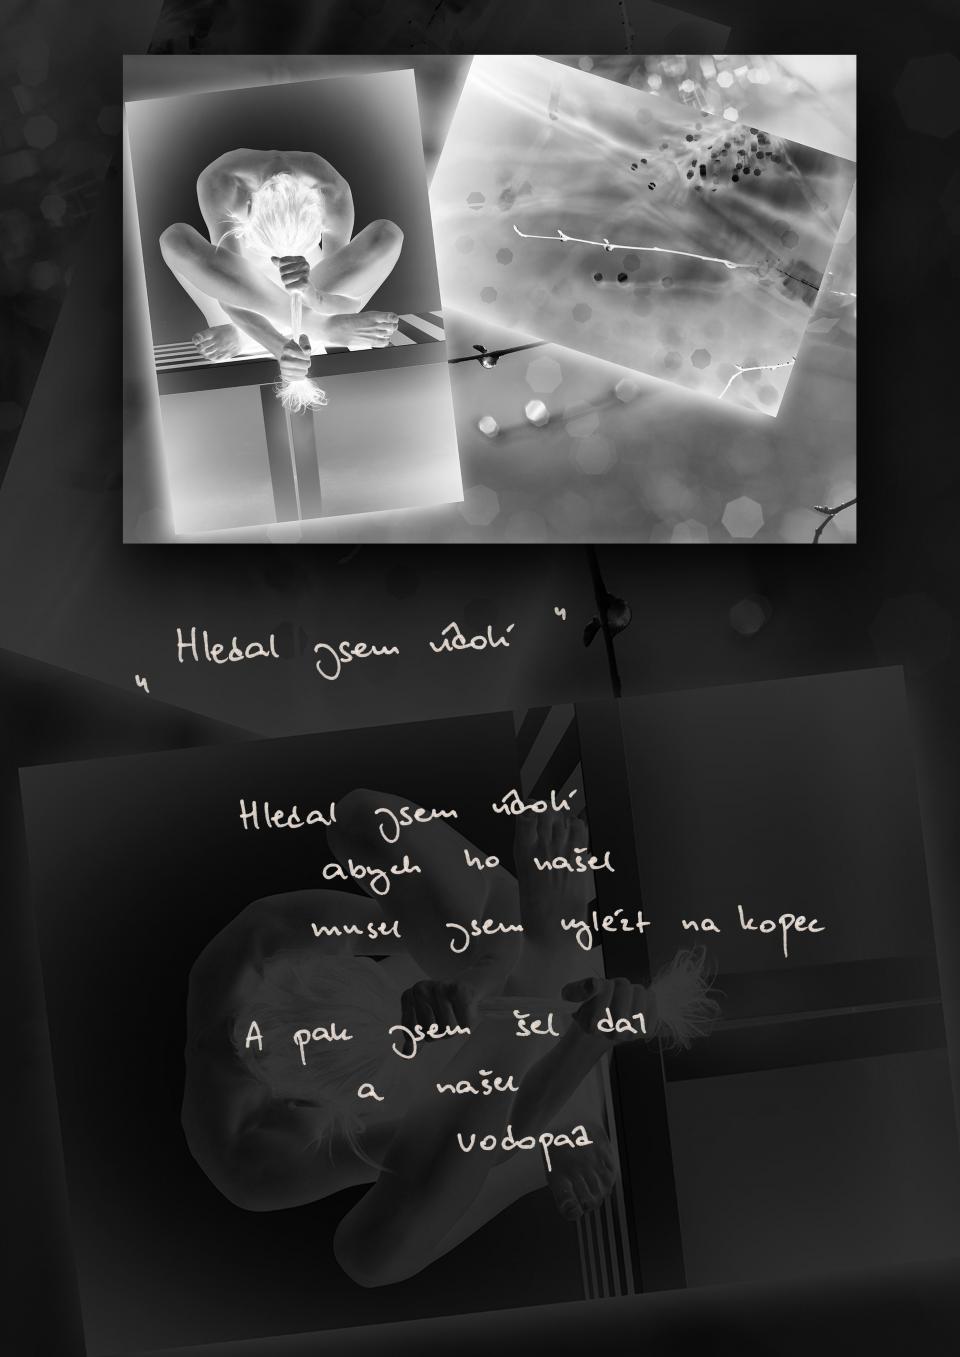 „Hledal jsem údolí“
Hledal jsem údolí
abych ho našel
musel jsem vylézt na kopec
A pak jsem šel dál
a našel
vodopád